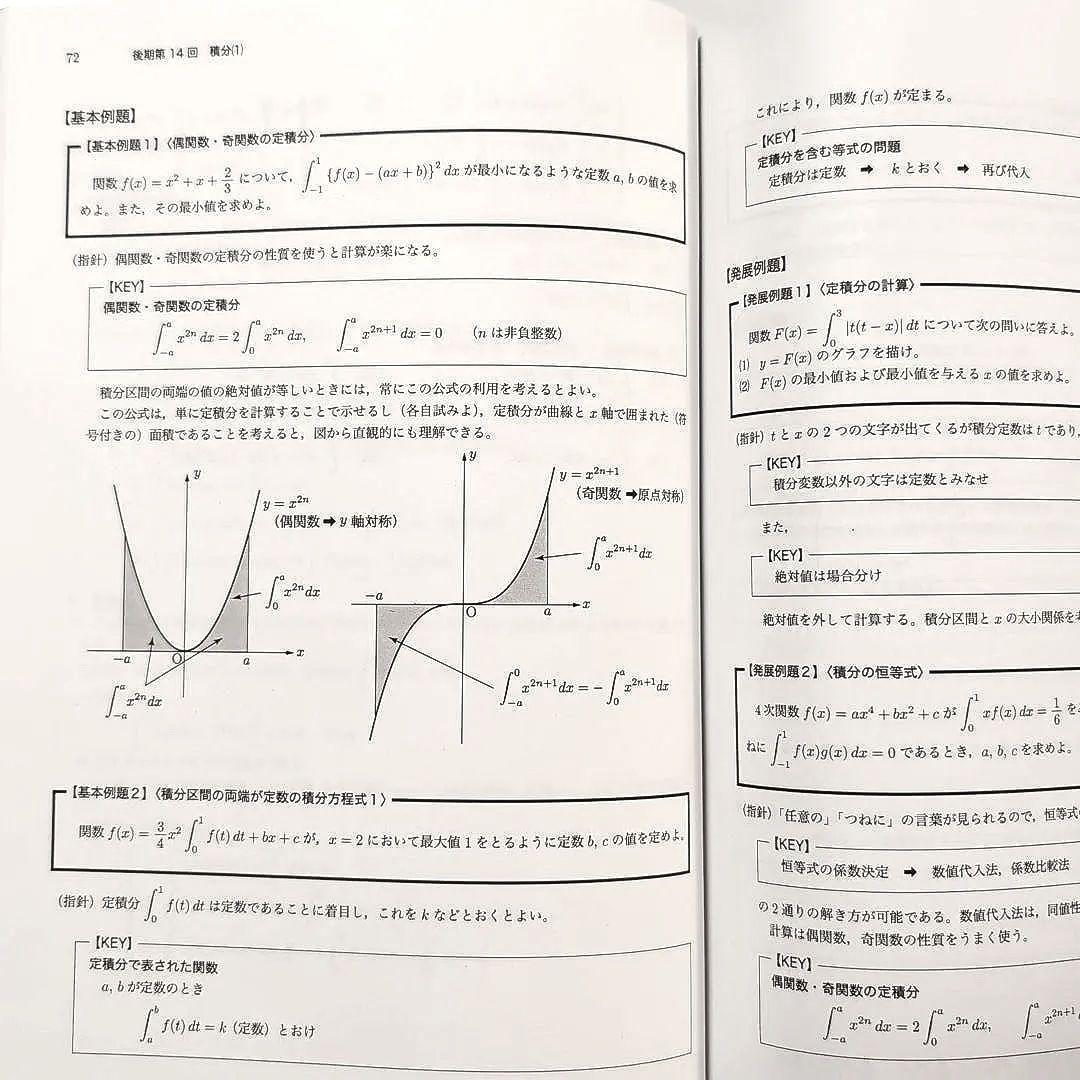 72 後期第14回 積分(1)
【基本例題】
【基本例題1】〈偶関数・奇関数の定積分〉
関数 f(x) = x² + x + 2/3 について, ∫_{-1}^{1} {f(x) − (ax + b)}² dx が最小になるような定数 a, b の値を求
めよ。また, その最小値を求めよ。
(指針) 偶関数・奇関数の定積分の性質を使うと計算が楽になる。
【KEY】
偶関数・奇関数の定積分
∫_{-a}^{a} x^{2n} dx = 2∫_{0}^{a} x^{2n} dx, ∫_{-a}^{a} x^{2n+1} dx = 0 (n は非負整数)
積分区間の両端の値の絶対値が等しいときには, 常にこの公式の利用を考えるとよい。
この公式は, 単に定積分を計算することで示せるし (各自試みよ), 定積分が曲線と x 軸で囲まれた (符
号付きの) 面積であることを考えると, 図から直観的にも理解できる。
y
y = x^{2n}
(偶関数 ➡ y 軸対称)
∫_{0}^{a} x^{2n} dx
−a O a x
∫_{-a}^{a} x^{2n} dx
y
y = x^{2n+1}
(奇関数 ➡ 原点対称)
∫_{0}^{a} x^{2n+1} dx
−a O a x
∫_{-a}^{0} x^{2n+1} dx = −∫_{0}^{a} x^{2n+1} dx
【基本例題2】〈積分区間の両端が定数の積分方程式1〉
関数 f(x) = 3/4 x² ∫_{0}^{1} f(t) dt + bx + c が, x = 2 において最大値 1 をとるように定数 b, c の値を定めよ。
(指針) 定積分 ∫_{0}^{1} f(t) dt は定数であることに着目し, これを k などとおくとよい。
【KEY】
定積分で表された関数
a, b が定数のとき
∫_{a}^{b} f(t) dt = k (定数) とおけ
これにより, 関数 f(x) が定まる。
【KEY】
定積分を含む等式の問題
定積分は定数 ➡ k とおく ➡ 再び代入
【発展例題】
【発展例題1】〈定積分の計算〉
関数 F(x) = ∫_{0}^{3} |t(t − x)| dt について次の問いに答えよ。
(1) y = F(x) のグラフを描け。
(2) F(x) の最小値および最小値を与える x の値を求めよ。
(指針) t と x の 2 つの文字が出てくるが積分定数は t であり,
【KEY】
積分変数以外の文字は定数とみなせ
また,
【KEY】
絶対値は場合分け
絶対値を外して計算する。積分区間と x の大小関係を
【発展例題2】〈積分の恒等式〉
4次関数 f(x) = ax⁴ + bx² + c が ∫_{0}^{1} xf(x) dx = 1/6 を
ねに ∫_{-1}^{1} f(x)g(x) dx = 0 であるとき, a, b, c を求めよ。
(指針) 「任意の」「つねに」の言葉が見られるので, 恒等式
【KEY】
恒等式の係数決定 ➡ 数値代入法, 係数比較法
の 2 通りの解き方が可能である。数値代入法は, 同値性
計算は偶関数, 奇関数の性質をうまく使う。
【KEY】
偶関数・奇関数の定積分
∫_{-a}^{a} x^{2n} dx = 2∫_{0}^{a} x^{2n} dx, ∫_{-a}^{a} x^{2n+1}